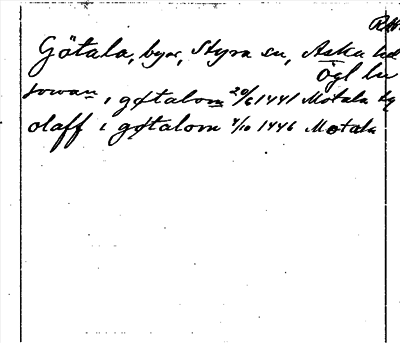 Götala, byar, Styra sn, Aska hd
Ögl ln
Jowan, i gøtalom 20/6 1441 Motala
olaff i gøtalom 4/10 1446 Motala